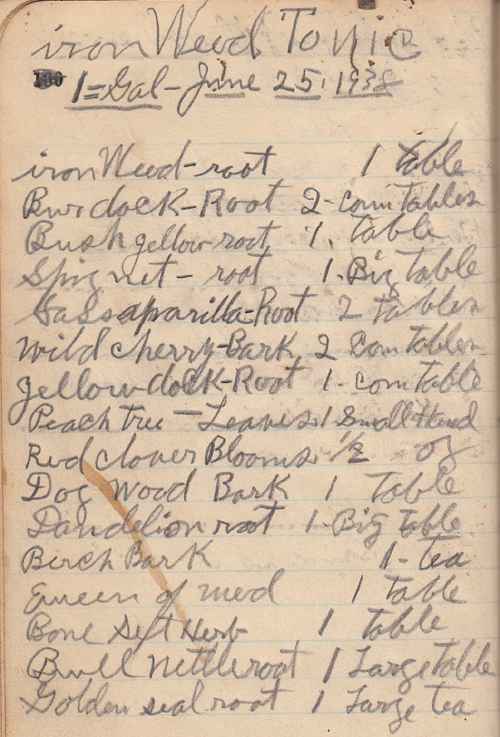 iron Weed Tonic
130 1=Gal-June 25, 1938
iron Weed-root 1 table
Burdock-Root 2-com Tables
Bush yellow root 1. Table
Spignet-root 1-Big table
Sassaparilla-Root 2 tables
Wild cherry-Bark 2 Com tables
yellow dock-Root 1-com table
Peach tree-Leaves 1 Small Hand
Red clover Blooms 1/2 oz
Dog Wood Bark 1 Table
Dandelion root 1-Big table
Birch Bark 1-tea
Queen of med 1 table
Bone Set Herb 1 Table
Bull nettle root 1 Large Table
Golden seal root 1 Large tea